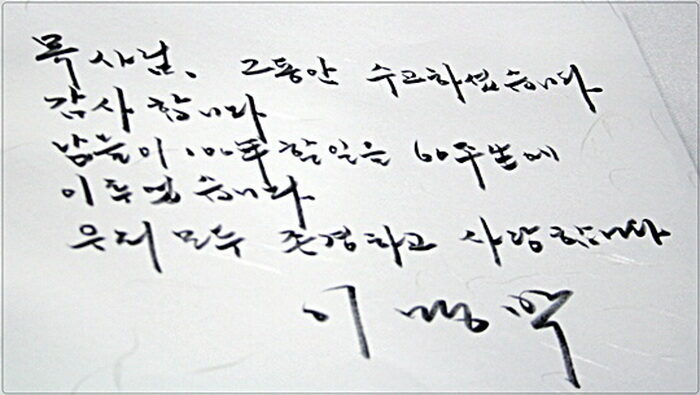 목사님, 그동안 수고하셨습니다
감사합니다
남들이 100年 할일을 60주년에
이루셨습니다
우리 모두 존경하고 사랑합니다
이명박